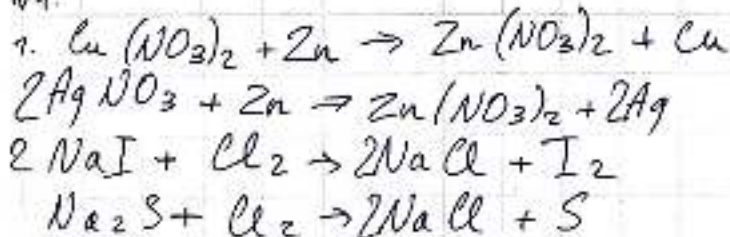 1. Cu(NO₃)₂ + Zn → Zn(NO₃)₂ + Cu
2AgNO₃ + Zn → Zn(NO₃)₂ + 2Ag
2NaI + Cl₂ → 2NaCl + I₂
Na₂S + Cl₂ → 2NaCl + S